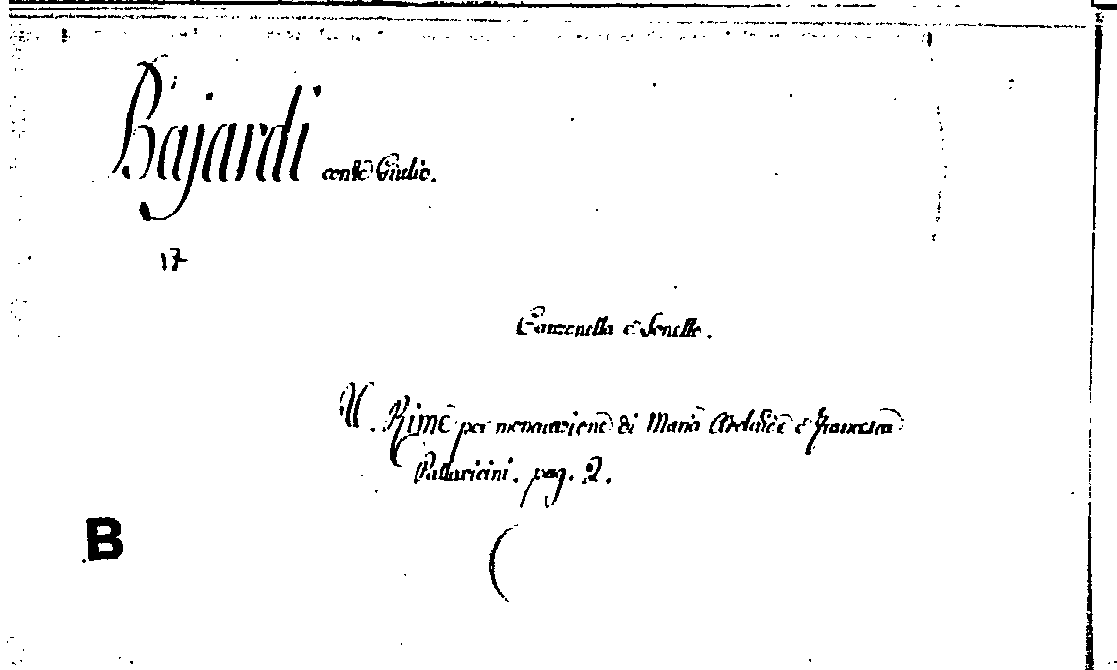 Bajardi conte Giulio.
17
Canzonetta e Sonetto.
V. Rime per monacazione di Maria e Francesca
Pallavicini. pag. 2.
B